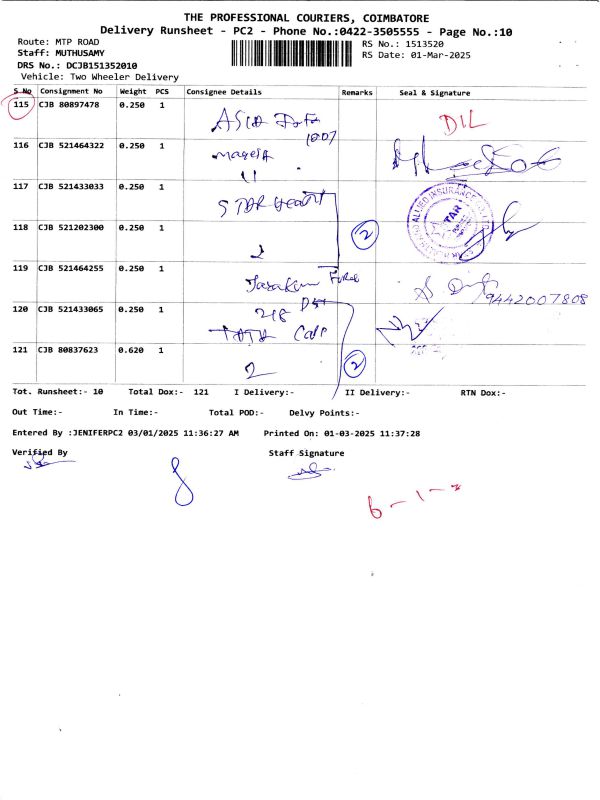 THE PROFESSIONAL COURIERS, COIMBATORE
Delivery Runsheet - PC2 - Phone No.:0422-3505555 - Page No.:10
Route: MTP ROAD
RS No.: 1513520
Staff: MUTHUSAMY
RS Date: 01-Mar-2025
DRS No.: DCJB151352010
Vehicle: Two Wheeler Delivery
S No Consignment No Weight PCS Consignee Details Remarks Seal & Signature
115 CJB 80897478 0.250 1
DIL
116 CJB 521464322 0.250 1
11
117 CJB 521433033 0.250 1 STAR Heart
STAR
118 CJB 521202300 0.250 1 2
2
119 CJB 521464255 0.250 1
9442007808
120 CJB 521433065 0.250 1 218
TATA Cap
121 CJB 80837623 0.620 1 2
2
Tot. Runsheet:- 10 Total Dox:- 121 I Delivery:- II Delivery:- RTN Dox:-
Out Time:- In Time:- Total POD:- Delvy Points:-
Entered By :JENIFERPC2 03/01/2025 11:36:27 AM Printed On: 01-03-2025 11:37:28
Verified By Staff Signature
8
6-1-